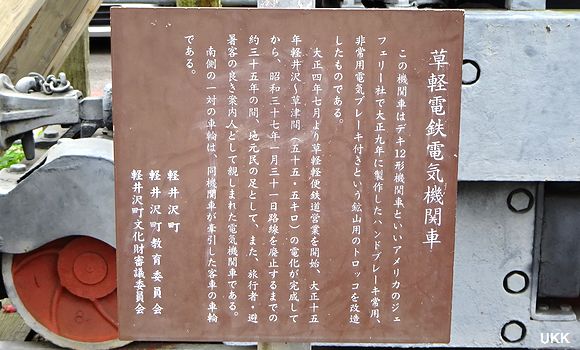 草軽電鉄電気機関車
この機関車はデキ12形機関車といいアメリカのジェ
フェリー社で大正九年に製作したハンドブレーキ常用、
非常用電気ブレーキ付きという鉱山用のトロッコを改造
したものである。
大正四年七月より草軽軽便鉄道営業を開始、大正十五
年軽井沢〜草津間（五十五・五キロ）の電化が完成して
から、昭和三十七年一月三十一日路線を廃止するまでの
約三十五年の間、地元民の足として、また、旅行者・避
暑客の良き案内人として親しまれた電気機関車である。
南側の一対の車輪は、同機関車が牽引した客車の車輪
である。
軽井沢町
軽井沢町教育委員会
軽井沢町文化財審議委員会
UKK